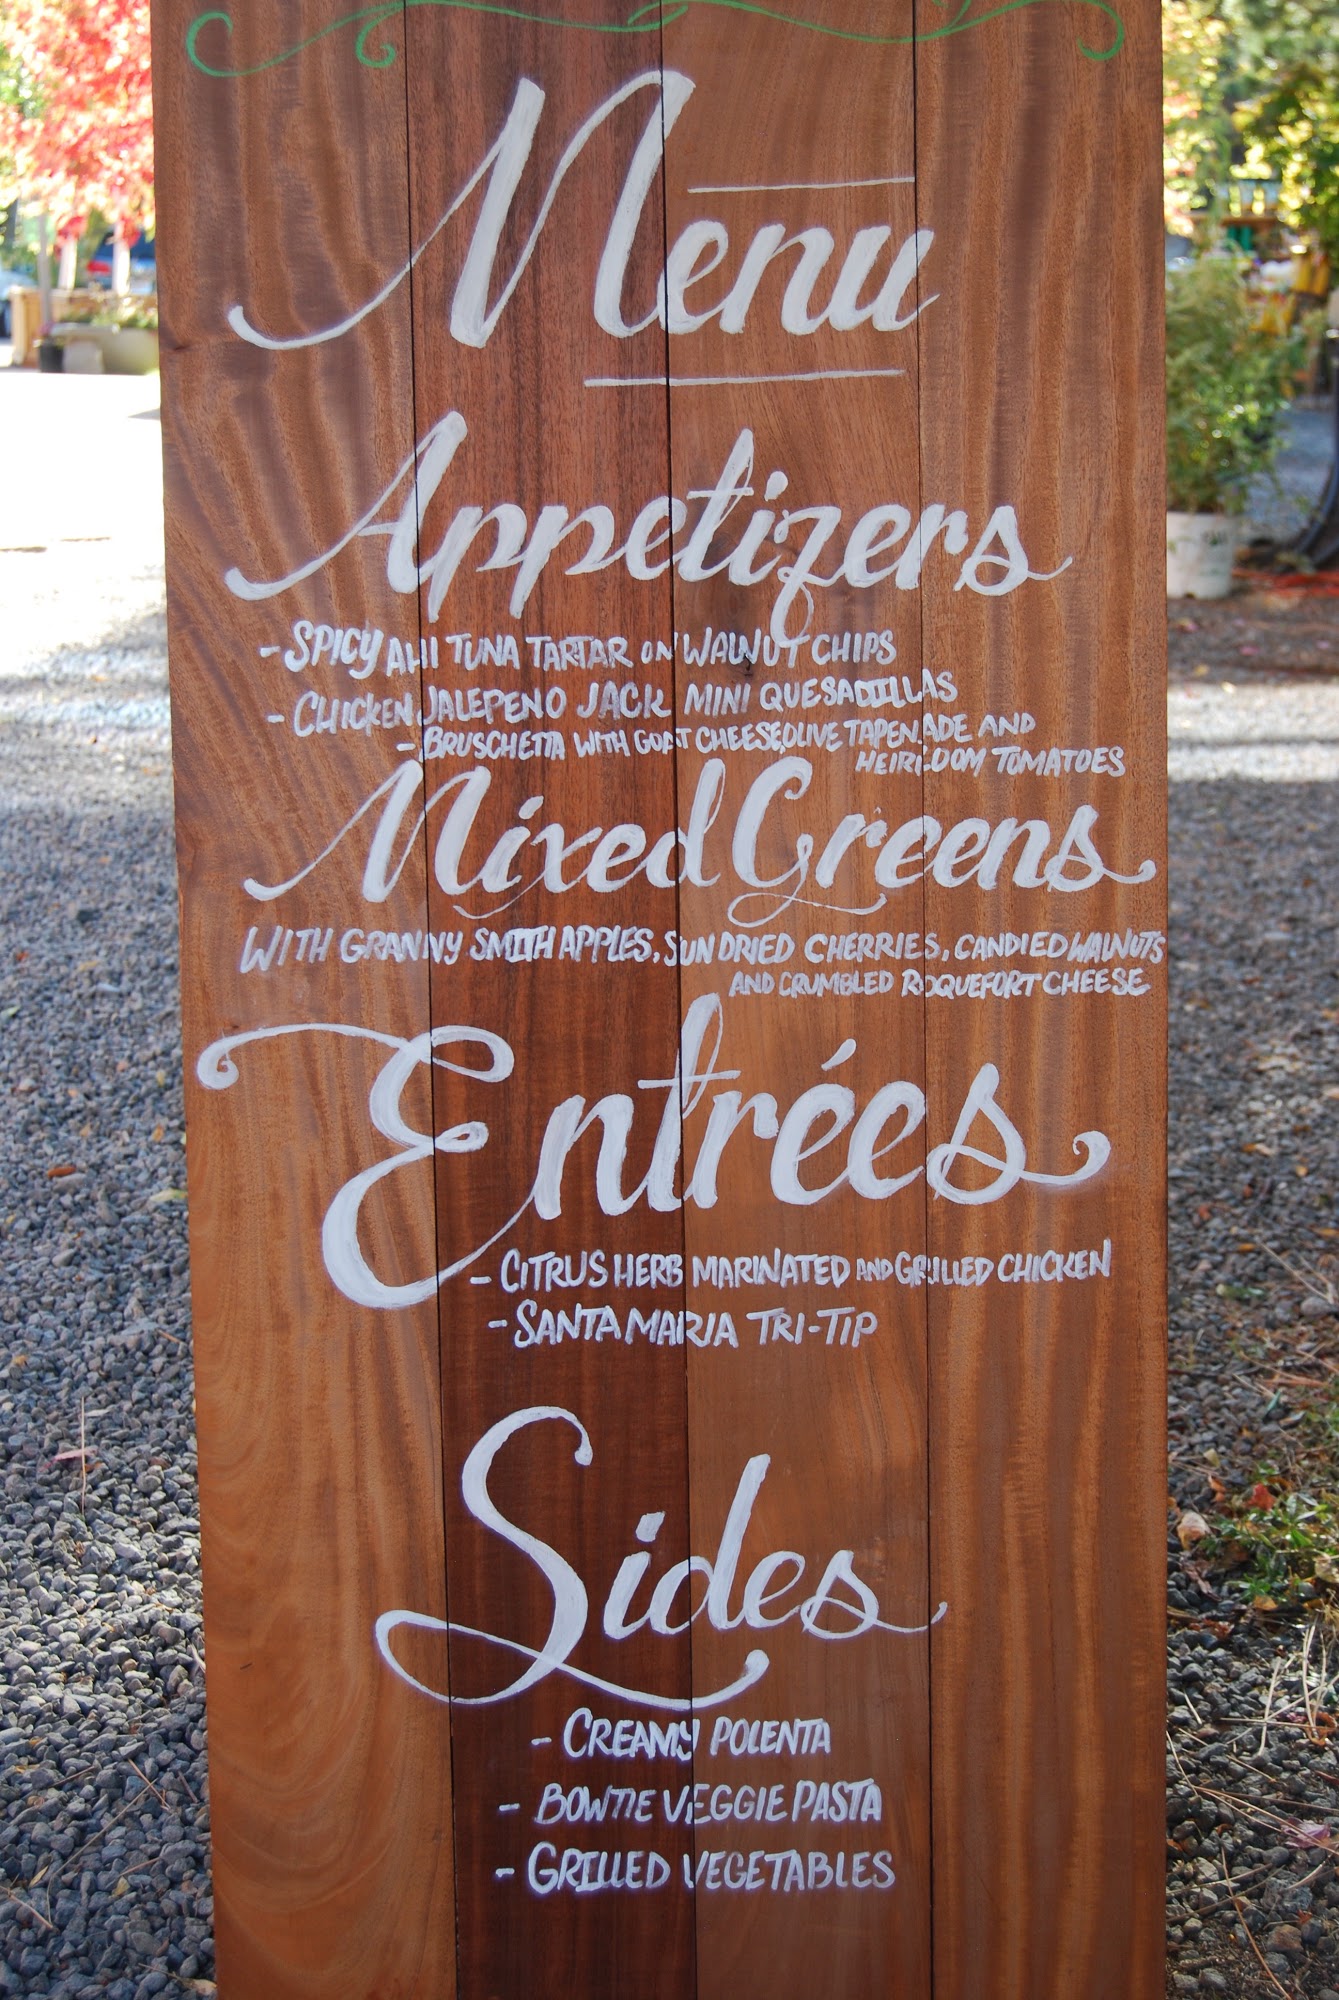 Menu
Appetizers
- SPICY AHI TUNA TARTAR ON WALNUT CHIPS
- CHICKEN JALEPENO JACK MINI QUESADILLAS
- BRUSCHETTA WITH GOAT CHEESE, OLIVE TAPENADE AND
HEIRLOOM TOMATOES
Mixed Greens
WITH GRANNY SMITH APPLES, SUN DRIED CHERRIES, CANDIED WALNUTS
AND CRUMBLED ROQUEFORT CHEESE
Entrées
- CITRUS HERB MARINATED AND GRILLED CHICKEN
- SANTA MARIA TRI-TIP
Sides
- CREAMY POLENTA
- BOWTIE VEGGIE PASTA
- GRILLED VEGETABLES